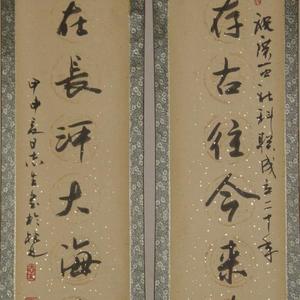 祝广西社科联成立二十年
存古往今来
在長河大海
甲申夏日